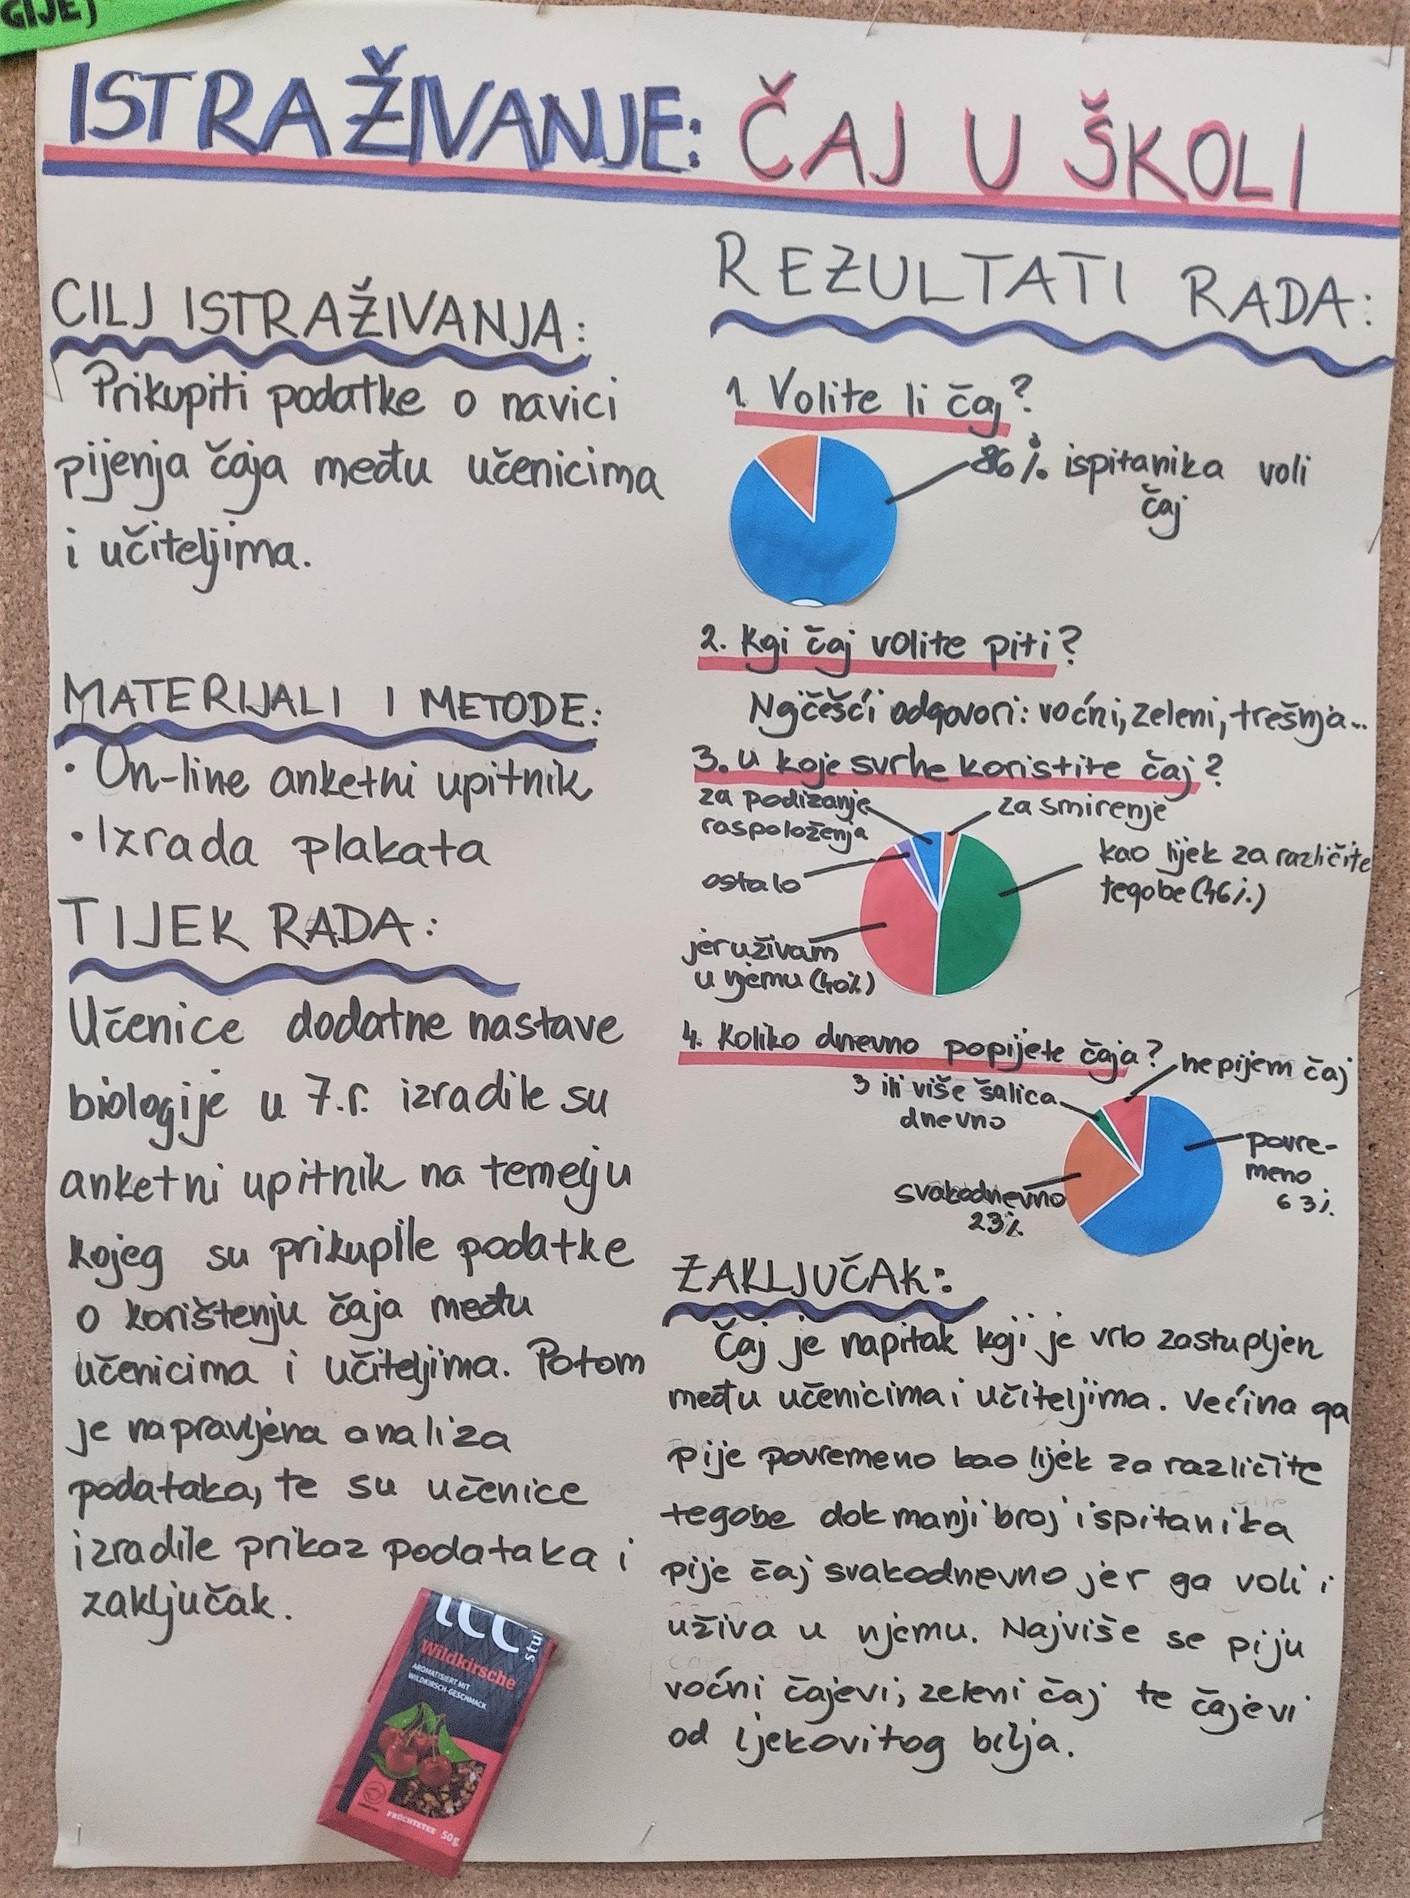 GIJEJ
ISTRAŽIVANJE: ČAJ U ŠKOLI
CILJ ISTRAŽIVANJA:
Prikupiti podatke o navici
pijenja čaja među učenicima
i učiteljima.
MATERIJALI I METODE:
• On-line anketni upitnik
• Izrada plakata
TIJEK RADA:
Učenice dodatne nastave
biologije u 7.r. izradile su
anketni upitnik na temelju
kojeg su prikupile podatke
o korištenju čaja među
učenicima i učiteljima. Potom
je napravljena analiza
podataka, te su učenice
izradile prikaz podataka i
zaključak.
REZULTATI RADA:
1. Volite li čaj?
86% ispitanika voli
čaj
2. Koji čaj volite piti?
Najčešći odgovori: voćni, zeleni, trešnja...
3. U koje svrhe koristite čaj?
za podizanje
raspoloženja
za smirenje
ostalo
kao lijek za različite
tegobe (46%)
jer uživam
u njemu (40%)
4. Koliko dnevno popijete čaja?
ne pijem čaj
3 ili više šalica
dnevno
povre-
meno
63%
svakodnevno
23%
ZAKLJUČAK:
Čaj je napitak koji je vrlo zastupljen
među učenicima i učiteljima. Većina ga
pije povremeno kao lijek za različite
tegobe dok manji broj ispitanika
pije čaj svakodnevno jer ga voli i
uživa u njemu. Najviše se piju
voćni čajevi, zeleni čaj te čajevi
od ljekovitog bilja.
Wildkirsche
AROMATISIERT MIT
WILDKIRSCH-GESCHMACK
FRÜCHTETEE 50g